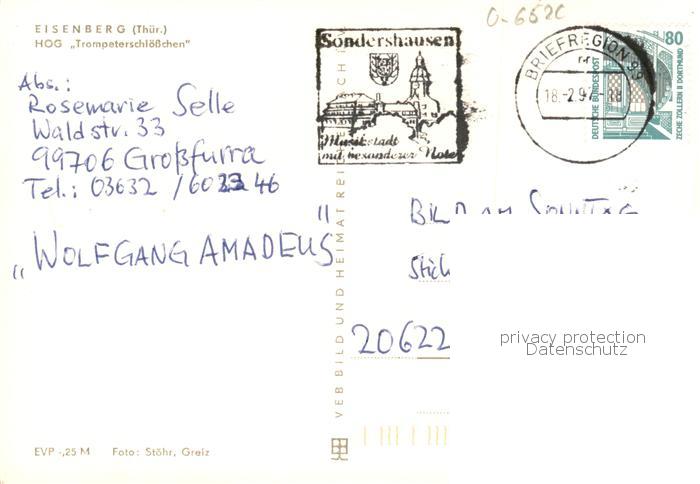 EISENBERG (Thür.)
HOG „Trompeterschlößchen"
Abs.:
Rosemarie Selle
Waldstr. 33
99706 Großfurra
Tel.: 03632 / 60 46
„WOLFGANG AMADEUS"
EVP -,25 M Foto: Stöhr, Greiz
VEB BILD UND HEIMAT REICH
0-6520
Sondershausen
Musikstadt
mit besonderer Note
BRIEFREGION 99
18.-2.97.-18
DEUTSCHE BUNDESPOST
80
ZECHE ZOLLERN II DORTMUND
BILD AM SONNTAG
Stich
20622
privacy protection
Datenschutz